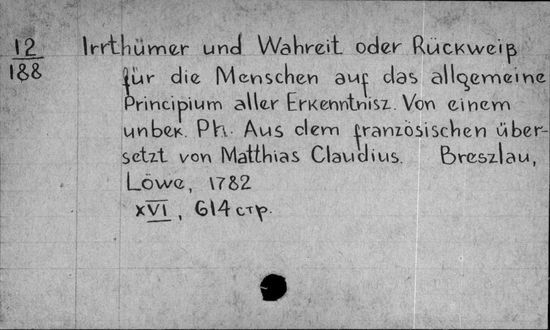 12
188
Irrthümer und Wahreit oder Rückweiß
für die Menschen auf das allgemeine
Principium aller Erkenntnisz. Von einem
unbek. Ph. Aus dem französischen über-
setzt von Matthias Claudius. Breszlau,
Löwe, 1782
XVI, 614 стр.